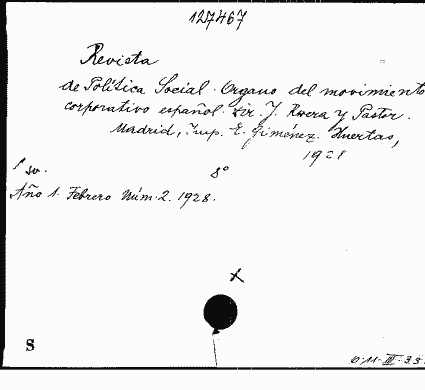 127467
Revista
de Política Social. Organo del movimiento
corporativo español. Dir. J. Rivera y Pastor.
Madrid, Imp. E. Giménez. Huertas,
1928
8º
Año 1. Febrero Núm. 2. 1928.
X
S